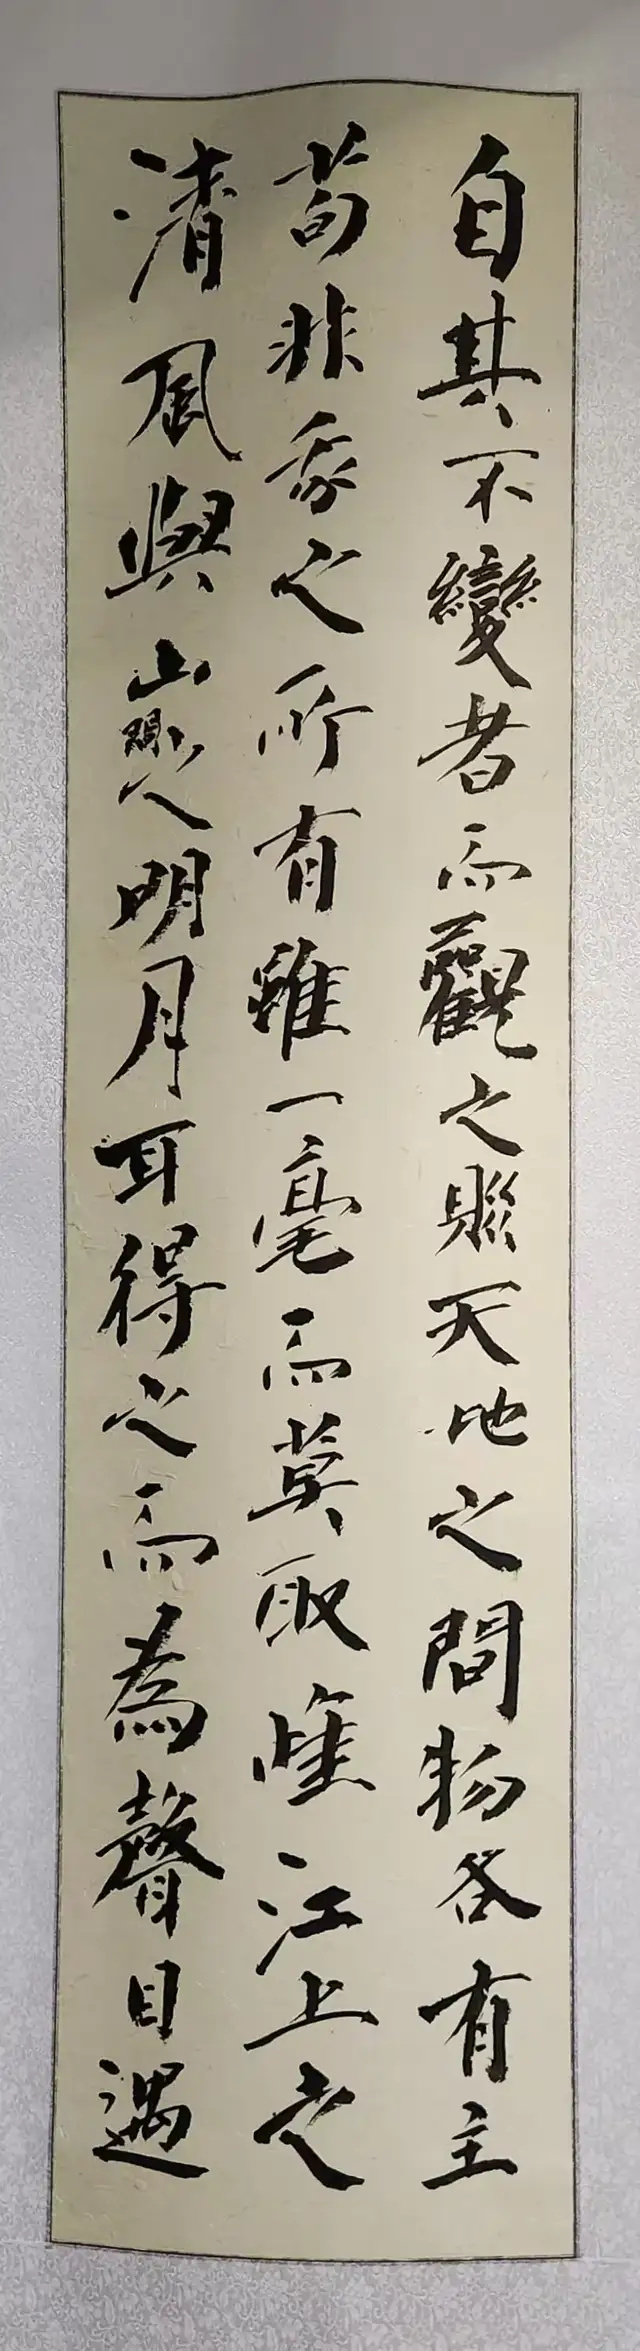 自其不變者而觀之天地之間物各有主
苟非吾之所有雖一毫而莫取惟江上之
清風與山間之明月耳得之而為聲目遇